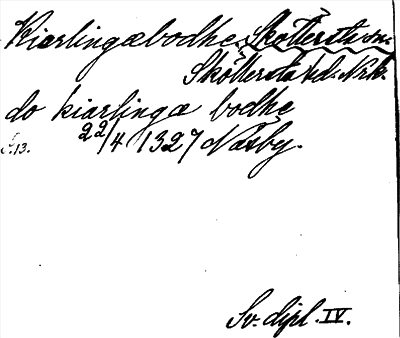 Kiærlingæbodhe. Sköllersta sn.
Sköllersta hd. Nrk.
do kiærlingæ bodhe
S. 13. 22/4 1327 Näsby.
Sv. dipl. IV.